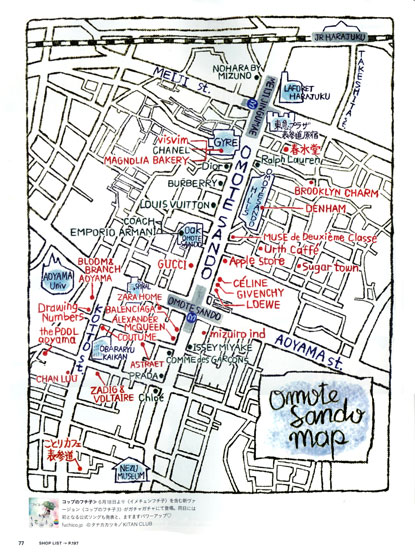 JR HARAJUKU
TAKESHITA st.
NOHARA BY
MIZUNO
MEIJI st.
MEIJI JINGUMAE
LAFORET
HARAJUKU
東急プラザ
表参道原宿
春水堂
visvim
CHANEL
MAGNOLIA BAKERY
GYRE
Dior
Ralph Lauren
BURBERRY
OMOTESANDO
OMOTE SANDO HILLS
BROOKLYN CHARM
DENHAM
LOUIS VUITTON
COACH
EMPORIO ARMANI
Oak
OMOTE
SANDO
MUSE de Deuxième Classe
Urth Caffé
Apple store
Sugar town
GUCCI
BLOOM &
BRANCH
AOYAMA
AOYAMA
Univ
SPIRAL
ZARA HOME
BALENCIAGA
ALEXANDER
McQUEEN
COUTUME
CÉLINE
GIVENCHY
LOEWE
OMOTE SANDO
Drawing
Numbers
the POOL
aoyama
KOTTO st.
OBARARYU
KAIKAN
mizuiro ind
AOYAMA st.
ISSEY MIYAKE
COMME des GARÇONS
ASTRAET
PRADA
CHAN LUU
ZADIG &
VOLTAIRE
Chloé
omote
sando
map
ことりカフェ
表参道
NEZU
MUSEUM
77 SHOP LIST → P.187